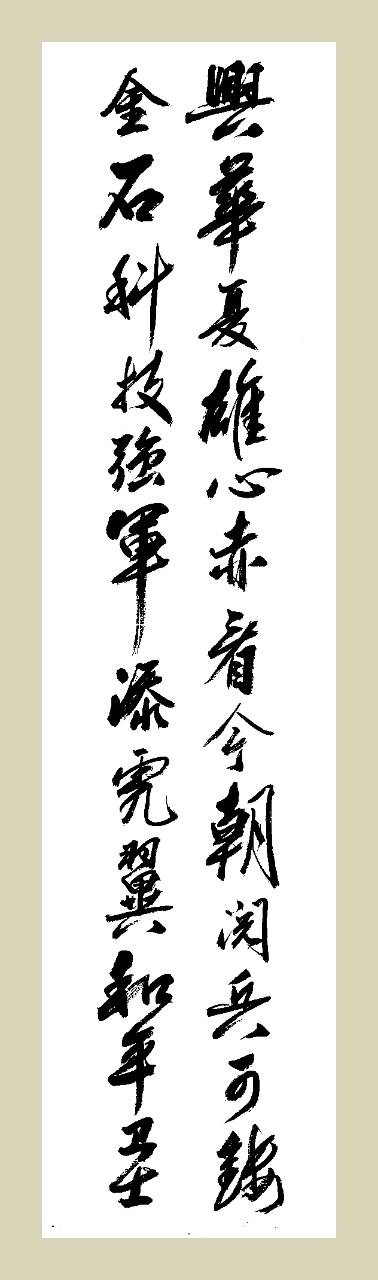 興華夏雄心赤看今朝閲兵可鏤
金石科技強軍添虎翼和平卫士